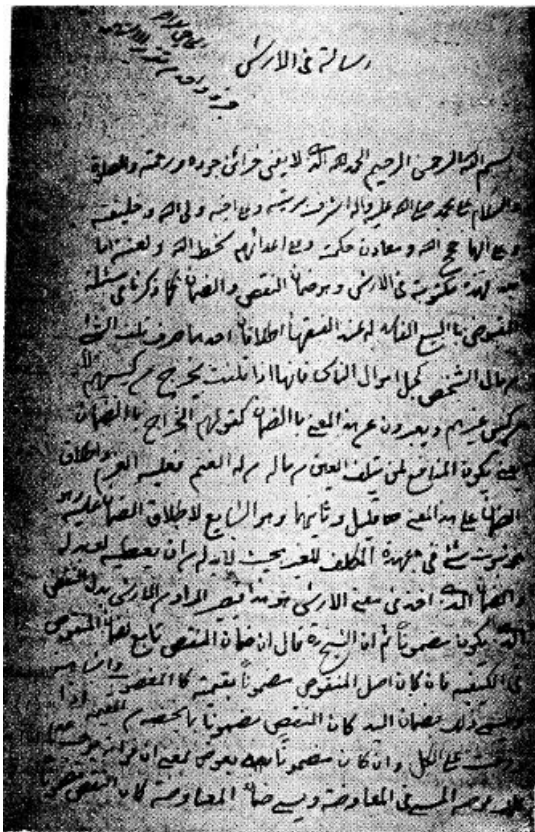 رسالة في الارش
بسم الله الرحمن الرحيم الحمد لله الذي لا يفنى خزائن جوده ورحمته والصلاة
والسلام على محمد صلى الله عليه واله اشرف بريته وعلى ولي الله وخليفته
حجج الله ومعادن حكمته وعلى اعدائهم سخط الله ولعنته اما
بعد فهذه مكتوبة في الارش وهو ضمان النقص والضمان كما ذكرنا في مسئلة
المقبوض بالبيع الفاسد له عند الفقهاء اطلاقان احدهما صرف تلف الشئ
من مال الشخص كجل اموال الناس فانها اذا تلفت يخرج من كيسهم لا
من كيس غيرهم ويعبرون عن هذا المعنى بالضمان كقولهم الخراج بالضمان
يعني يكون المنافع لمن تلف العين من ماله من له الغنم فعليه الغرم واطلاق
الضمان على هذا المعنى قليل وثانيها وهو الشايع لاطلاق الضمان عليه وهو
ثبوت شئ في عهدة المكلف للغير بحيث لابد له من ان يعطيه
والضمان الذي اخذ في معنى الارش هو هذا المراد من الارش بدل النقص
الذي يكون مضمونا ثم ان الشيخ ره قال ان ضمان النقص تابع لضمان المنقوص
في الكيفية فان كان اصل المنقوص مضمونا بقيمته كالمغصوب
ويسمى ذلك بضمان اليد كان النقص مضمونا بما يخصه من القيمة اذا
وزعت على الكل وان كان مضمونا بعوض بمعنى ان
المسمى في المعاوضة ويسمى ضمان المعاوضة كان النقص مضمونا